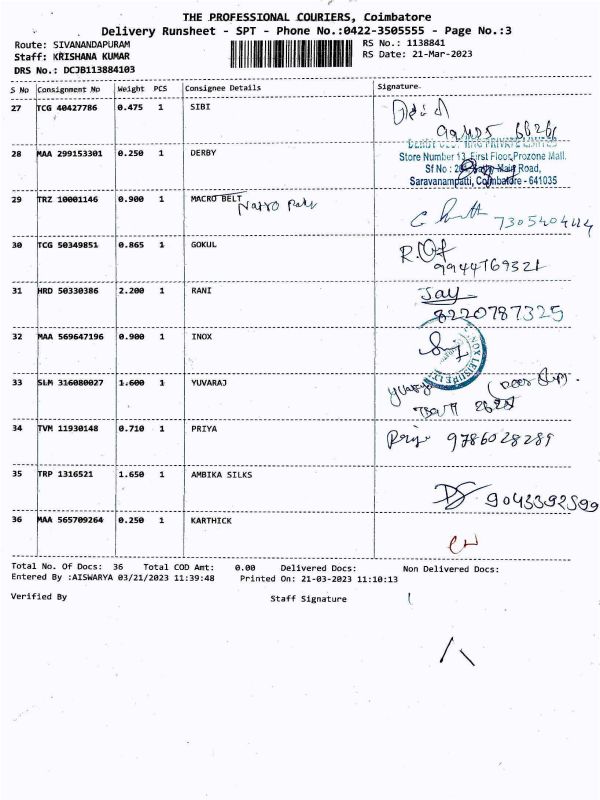 THE PROFESSIONAL COURIERS, Coimbatore
Delivery Runsheet - SPT - Phone No.:0422-3505555 - Page No.:3
Route: SIVANANDAPURAM
RS No.: 1138841
Staff: KRISHANA KUMAR
RS Date: 21-Mar-2023
DRS No.: DCJB113884103
S No Consignment No Weight PCS Consignee Details Signature.
27 TCG 40427786 0.475 1 SIBI
28 MAA 299153301 0.250 1 DERBY
Store Number 13, First Floor,Prozone Mall.
Sf No : Main Road,
Saravanampatti, Coimbatore - 641035
29 TRZ 10001146 0.900 1 MACRO BELT
7305404424
30 TCG 50349851 0.865 1 GOKUL
9944769321
31 HRD 50330386 2.200 1 RANI Jay
8220787325
32 MAA 569647196 0.900 1 INOX
33 SLM 316080027 1.600 1 YUVARAJ
34 TVM 11930148 0.710 1 PRIYA Priya 9786028289
35 TRP 1316521 1.650 1 AMBIKA SILKS
9043392599
36 MAA 565709264 0.250 1 KARTHICK
Total No. Of Docs: 36 Total COD Amt: 0.00 Delivered Docs: Non Delivered Docs:
Entered By :AISWARYA 03/21/2023 11:39:48 Printed On: 21-03-2023 11:10:13
Verified By Staff Signature